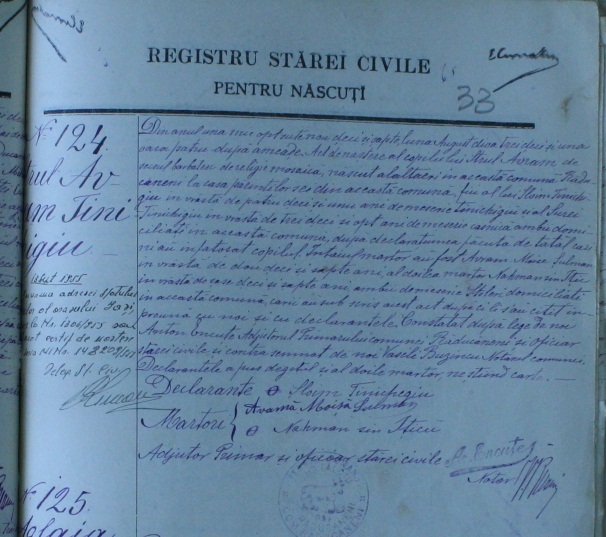 REGISTRU STĂREI CIVILE
PENTRU NĂSCUȚI
33
Nº 124
Din anul una mie opt sute nou deci și șapte, luna August diua trei deci și una
oara patru după ameade. Act de nascere al copilului Strul Avram de
secsul barbătesc de religie mosaica, născut alaltăeri în această comună Rădu
caneni la casa părinților sei din această comună, fiu al lui Sloim Tinichi
giu în vrastă de patru deci și unu ani de meserie tinichigiu și al Surei
Tinichigiu în vrastă de trei deci și opt ani de meserie casnică ambii domi
ciliați în această comună, după declarațiunea făcută de tatăl care
ni au înfățoșat copilul. Întăiul martor au fost Avram Moise Sulman
în vrastă de dou deci și șapte ani, al doilea martor Nahman sin Ițic
în vrastă de șase deci și șapte ani ambii domiciliați
în această comună, carii au sub scris acest act după ci li sau cetit in
preună cu noi și cu declarantele. Constatat după lege de noi
Anton Encuțe Adjutorul Primarului comunei Răducăneni și oficear
stărei civile și contra semnat de noi Vasile Buzincu Notarul comunei.
Declarantele a pus degetul și al doile martor, neștiind carte. —
trul Av-
ram Tini
higiu —
1955
Delep. St. Civ.
Declarante Sloym Tinichigiu
Martori { Avramă Moisă Sulman
Nahman sin Iticu
Adjutor Primar și oficear stărei civile A. Encuțe
Notar
Nº 125.